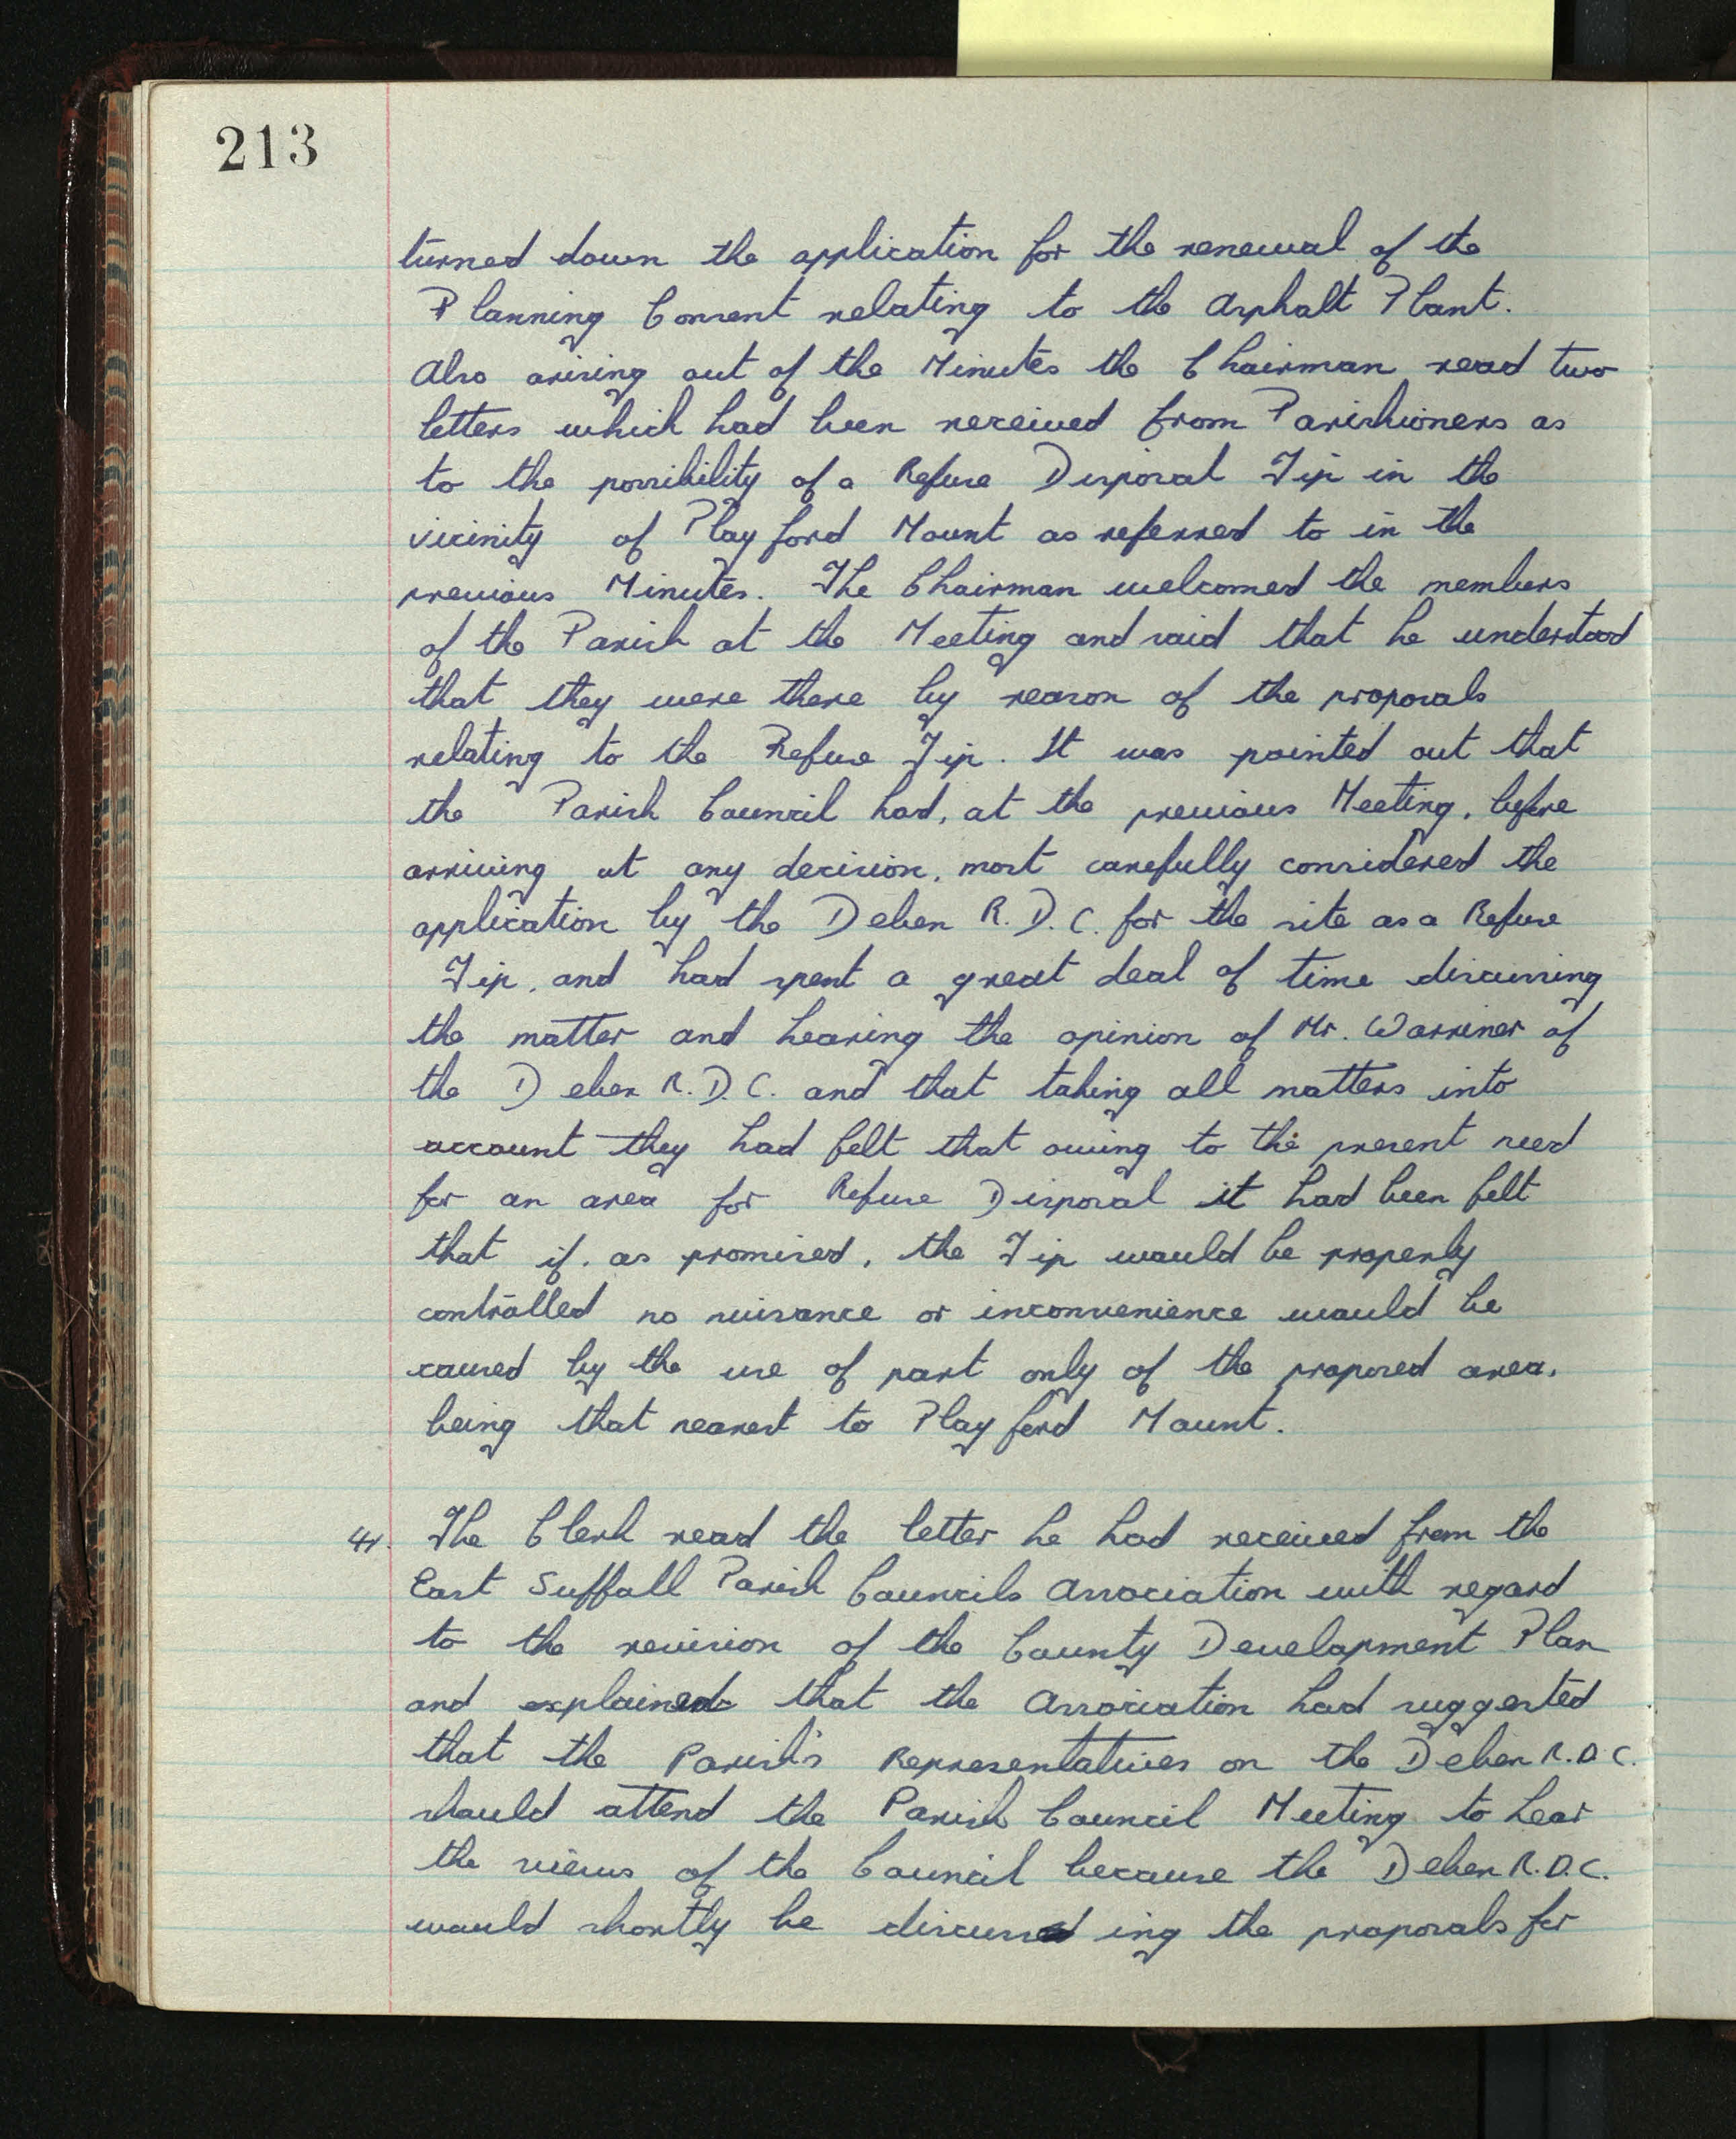 213
turned down the application for the renewal of the
Planning Consent relating to the Asphalt Plant.
Also arising out of the Minutes the Chairman read two
letters which had been received from Parishioners as
to the possibility of a Refuse Disposal Tip in the
vicinity of Playford Mount as referred to in the
previous Minutes. The Chairman welcomed the members
of the Parish at the Meeting and said that he understood
that they were there by reason of the proposals
relating to the Refuse Tip. It was pointed out that
the Parish Council had, at the previous Meeting, before
arriving at any decision, most carefully considered the
application by the Deben R.D.C. for the site as a Refuse
Tip, and had spent a great deal of time discussing
the matter and hearing the opinion of Mr. Warriner of
the Deben R.D.C. and that taking all matters into
account they had felt that owing to the present need
for an area for Refuse Disposal it had been felt
that if, as promised, the Tip would be properly
controlled no nuisance or inconvenience would be
caused by the use of part only of the proposed area,
being that nearest to Playford Mount.
4. The Clerk read the letter he had received from the
East Suffolk Parish Councils Association with regard
to the revision of the County Development Plan
and explained that the Association had suggested
that the Parish's Representatives on the Deben R.D.C.
should attend the Parish Council Meeting to hear
the views of the Council because the Deben R.D.C.
would shortly be discussing the proposals for